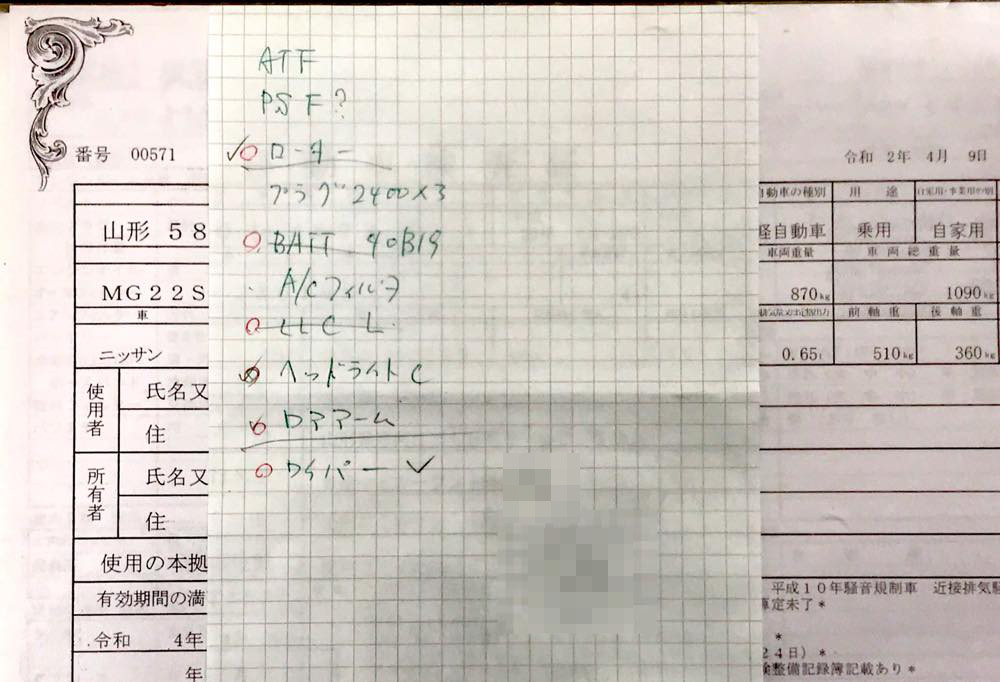 ATF
PSF?
ローター
プラグ2400×3
BATT 40B19
A/Cフィルタ
LLC L
ヘッドライトC
ロアアーム
ワイパー
番号 00571
令和 2年 4月 9日
山形 58
自動車の種別 用途 自家用・事業用の別
軽自動車 乗用 自家用
車両重量 車両総重量
MG22S
870kg 1090kg
車
前軸重 後軸重
ニッサン
0.65l 510kg 360kg
使用者
氏名又
住
所有者
氏名又
住
使用の本拠
有効期間の満
令和 4年
年
平成10年騒音規制車 近接排気騒
算定未了*
*
24日)*
検整備記録簿記載あり*